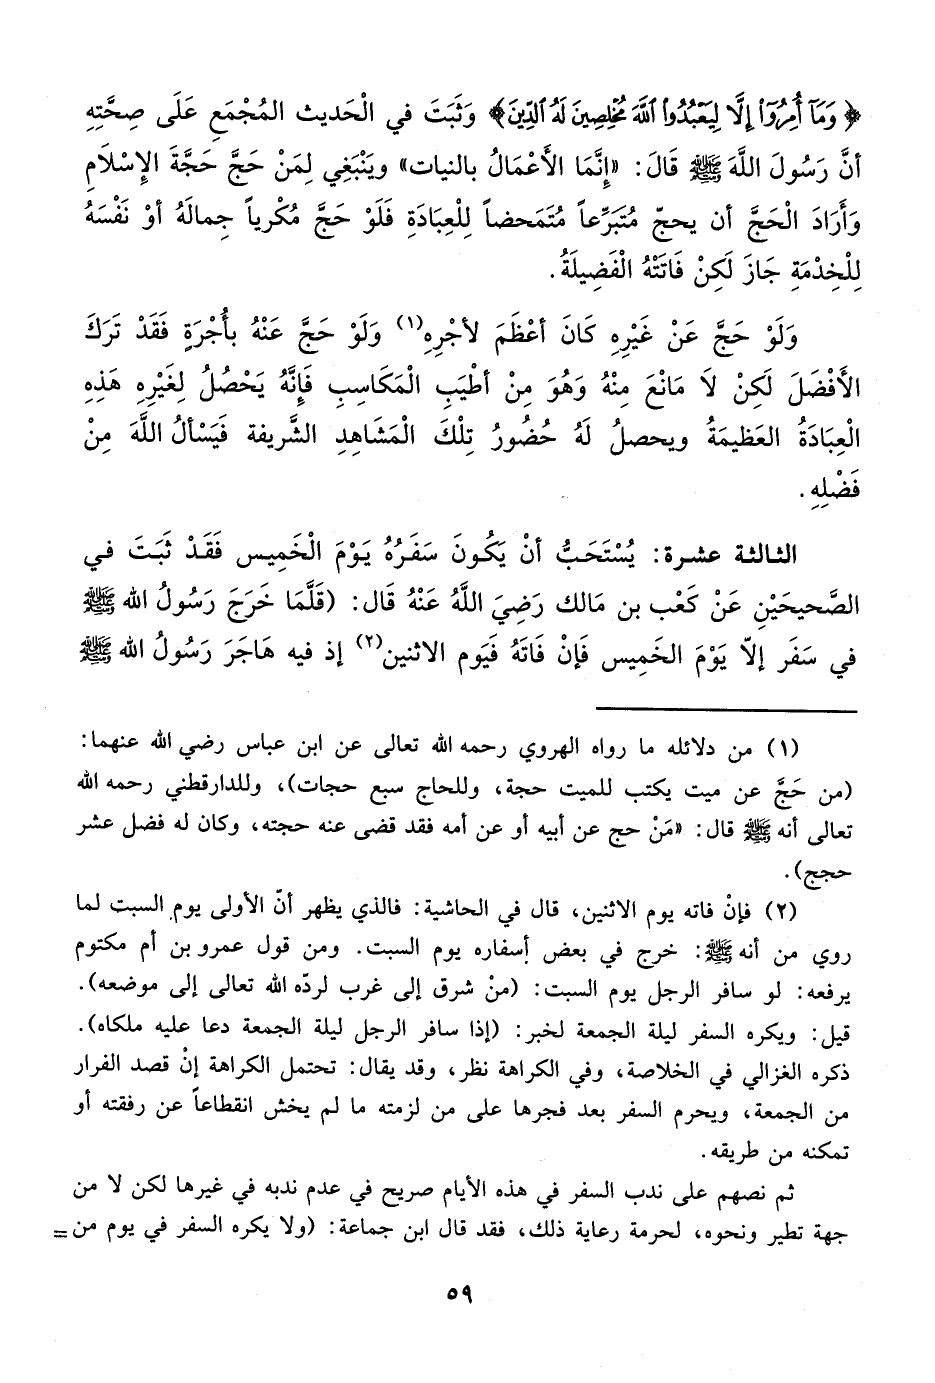 ﴿وَمَآ أُمِرُوٓا۟ إِلَّا لِيَعْبُدُوا۟ ٱللَّهَ مُخْلِصِينَ لَهُ ٱلدِّينَ﴾ وَثَبَتَ في الْحَديث المُجْمَعِ عَلَى صِحَّتِهِ
أنَّ رَسُولَ اللَّهَ ﷺ قَالَ: «إنَّمَا الأَعْمَالُ بالنيات» ويَنْبَغِي لِمَنْ حَجَّ حَجَّةَ الإسْلَامِ
وَأَرَادَ الْحَجَّ أن يحجّ مُتَبَرِّعاً مُتَمَحضاً لِلْعِبَادَةِ فَلَوْ حَجَّ مُكْرياً جمالَهُ أوْ نَفْسَهُ
لِلْخِدْمَةِ جَازَ لَكِنْ فَاتَتْهُ الْفَضِيلَةُ.
وَلَوْ حَجَّ عَنْ غَيْرِهِ كَانَ أعْظَمَ لأجْرِهِ(١) وَلَوْ حَجَّ عَنْهُ بأُجْرَةٍ فَقَدْ تَرَكَ
الأَفْضَلَ لَكِنْ لَا مَانْعَ مِنْهُ وَهُوَ مِنْ أطْيَبِ الْمَكَاسِبِ فَإنَّهُ يَحْصُلُ لِغَيْرِهِ هَذِهِ
الْعِبَادَةُ العَظِيمَةُ ويحصلُ لَهُ حُضُورُ تِلْكَ الْمَشَاهِدِ الشَّريفة فَيَسْألُ اللَّهَ مِنْ
فَضْلِهِ.
الثالثة عشرة: يُسْتَحَبُّ أنْ يَكُونَ سَفَرُهُ يَوْمَ الْخَمِيس فَقَدْ ثَبَتَ في
الصَّحيحَيْنِ عَنْ كَعْب بن مَالك رَضِيَ اللَّهُ عَنْهُ قَال: (قَلَّمَا خَرَجَ رَسُولُ الله ﷺ
في سَفَر إلاّ يَوْمَ الخَمِيس فَإنْ فَاتَهُ فَيَوم الاثنين(٢) إذ فيه هَاجَرَ رَسُولُ الله ﷺ
(١) من دلائله ما رواه الهروي رحمه الله تعالى عن ابن عباس رضي الله عنهما:
(من حَجَّ عن ميت يكتب للميت حجة، وللحاج سبع حجات)، وللدارقطني رحمه الله
تعالى أنه ﷺ قال: «مَنْ حج عن أبيه أو عن أمه فقد قضى عنه حجته، وكان له فضل عشر
حجج).
(٢) فإنْ فاته يوم الاثنين، قال في الحاشية: فالذي يظهر أنّ الأولى يوم السبت لما
روي من أنه ﷺ: خرج في بعض أسفاره يوم السبت. ومن قول عمرو بن أم مكتوم
يرفعه: لو سافر الرجل يوم السبت: (منْ شرق إلى غرب لردّه الله تعالى إلى موضعه).
قيل: ويكره السفر ليلة الجمعة لخبر: (إذا سافر الرجل ليلة الجمعة دعا عليه ملكاه).
ذكره الغزالي في الخلاصة، وفي الكراهة نظر، وقد يقال: تحتمل الكراهة إنْ قصد الفرار
من الجمعة، ويحرم السفر بعد فجرها على من لزمته ما لم يخش انقطاعاً عن رفقته أو
تمكنه من طريقه.
ثم نصهم على ندب السفر في هذه الأيام صريح في عدم ندبه في غيرها لكن لا من
جهة تطير ونحوه، لحرمة رعاية ذلك، فقد قال ابن جماعة: (ولا يكره السفر في يوم من =
٥٩